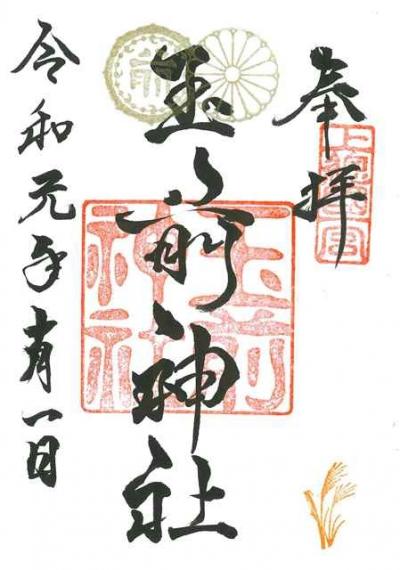 奉拝
上総一宮
玉前神社
玉前神社
令和元年十一月一日